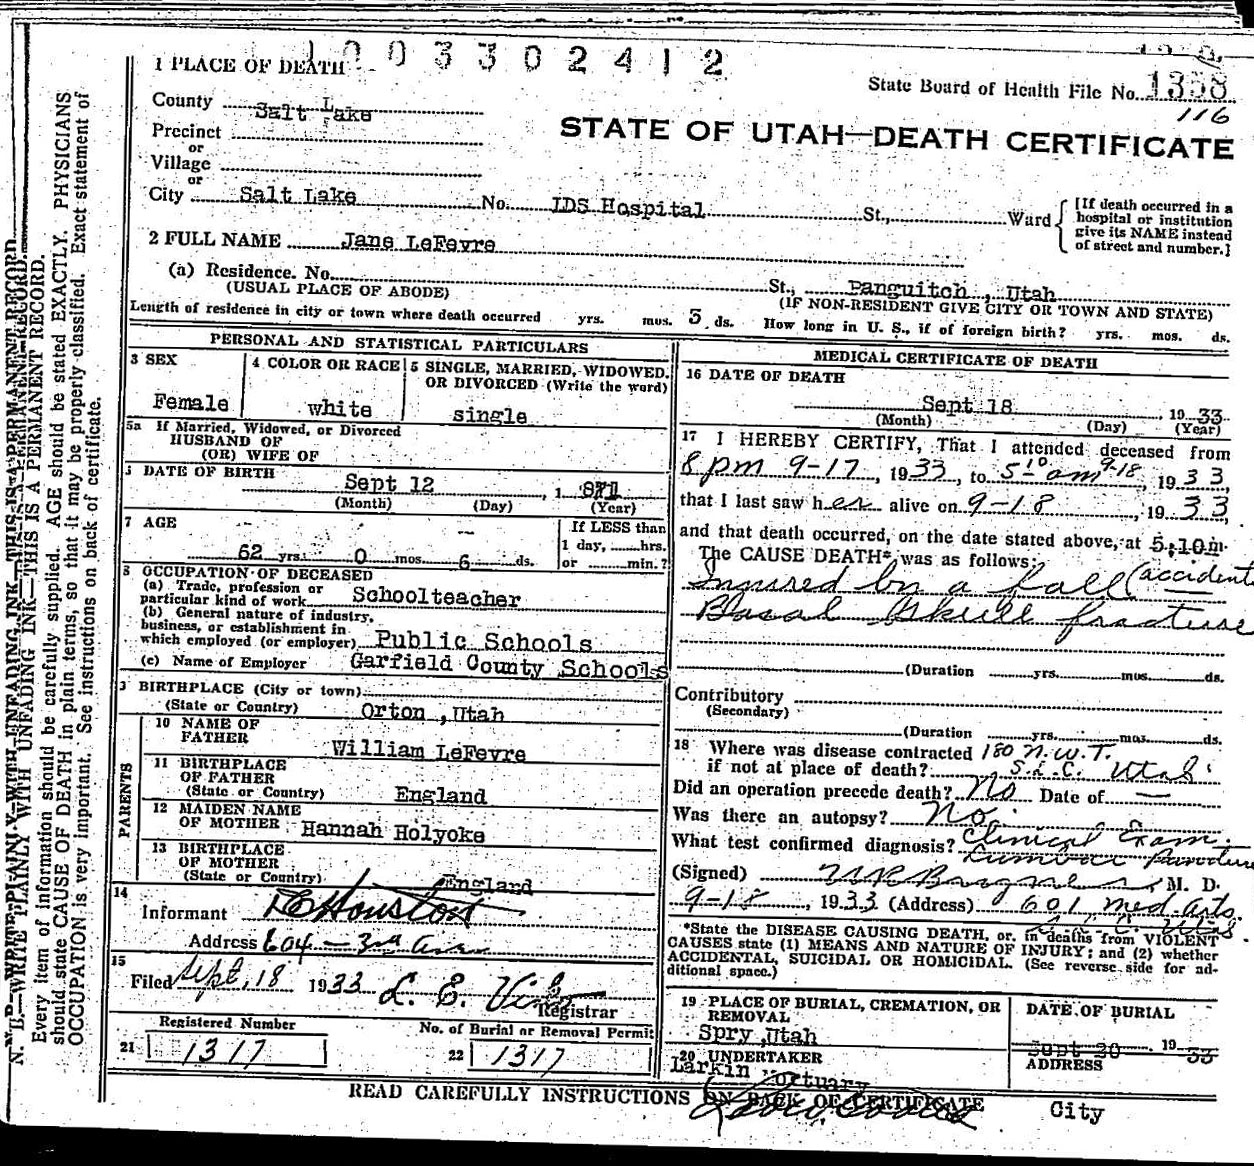 1003302412
1 PLACE OF DEATH
State Board of Health File No. 1358
116
County Salt Lake
STATE OF UTAH—DEATH CERTIFICATE
Precinct
or
Village
or
City Salt Lake No. LDS Hospital St., Ward
[If death occurred in a
hospital or institution
give its NAME instead
of street and number.]
2 FULL NAME Jane LeFevre
(a) Residence. No. St., Panguitch , Utah
(USUAL PLACE OF ABODE) (IF NON-RESIDENT GIVE CITY OR TOWN AND STATE)
Length of residence in city or town where death occurred yrs. mos. 3 ds. How long in U. S., if of foreign birth? yrs. mos. ds.
PERSONAL AND STATISTICAL PARTICULARS
3 SEX
Female
4 COLOR OR RACE
white
5 SINGLE, MARRIED, WIDOWED,
OR DIVORCED (Write the word)
single
5a If Married, Widowed, or Divorced
HUSBAND OF
(OR) WIFE OF
DATE OF BIRTH
Sept 12 , 1 871
(Month) (Day) (Year)
7 AGE
62 yrs. 0 mos. 6 ds.
If LESS than
1 day, hrs.
or min.?
8 OCCUPATION OF DECEASED
(a) Trade, profession or
particular kind of work Schoolteacher
(b) General nature of industry,
business, or establishment in
which employed (or employer) Public Schools
(c) Name of Employer Garfield County Schools
BIRTHPLACE (City or town)
(State or Country) Orton ,Utah
PARENTS
10 NAME OF
FATHER William LeFevre
11 BIRTHPLACE
OF FATHER
(State or Country) England
12 MAIDEN NAME
OF MOTHER Hannah Holyoke
13 BIRTHPLACE
OF MOTHER
(State or Country) England
14
Informant D E Houston
Address 604 – 3rd Ave
15
Filed Sept, 18 1933 L. E.
Registrar
Registered Number
21 1317
No. of Burial or Removal Permit
22 1317
MEDICAL CERTIFICATE OF DEATH
16 DATE OF DEATH
Sept 18 , 19 33
(Month) (Day) (Year)
17 I HEREBY CERTIFY, That I attended deceased from
8 pm 9-17, 1933, to 5 10 am 9-18, 1933,
that I last saw her alive on 9-18, 1933,
and that death occurred, on the date stated above, at 5;10m.
The CAUSE DEATH* was as follows:
Injured by a fall (accident
Basal skull fracture
(Duration yrs. mos. ds.
Contributory
(Secondary)
(Duration yrs. mos. ds.
18 Where was disease contracted 180 N.W.T.
if not at place of death? S.L.C. Utah
Did an operation precede death? No Date of —
Was there an autopsy? No.
What test confirmed diagnosis? Clinical Exam.
Lumbar Puncture
(Signed) M. D.
9-18, 1933 (Address) 601 Med Arts.
S.L.C. Utah.
*State the DISEASE CAUSING DEATH, or, in deaths from VIOLENT
CAUSES state (1) MEANS AND NATURE OF INJURY; and (2) whether
ACCIDENTAL, SUICIDAL OR HOMICIDAL. (See reverse side for ad-
ditional space.)
19 PLACE OF BURIAL, CREMATION, OR
REMOVAL
Spry ,Utah
DATE OF BURIAL
Sept 20 . 19 33
20 UNDERTAKER
Larkin Mortuary
ADDRESS
City
READ CAREFULLY INSTRUCTIONS ON BACK OF CERTIFICATE
N. B.—WRITE PLAINLY WITH UNFADING INK—THIS IS A PERMANENT RECORD.
Every item of information should be carefully supplied. AGE should be stated EXACTLY. PHYSICIANS
should state CAUSE OF DEATH in plain terms, so that it may be properly classified. Exact statement of
OCCUPATION is very important. See instructions on back of certificate.